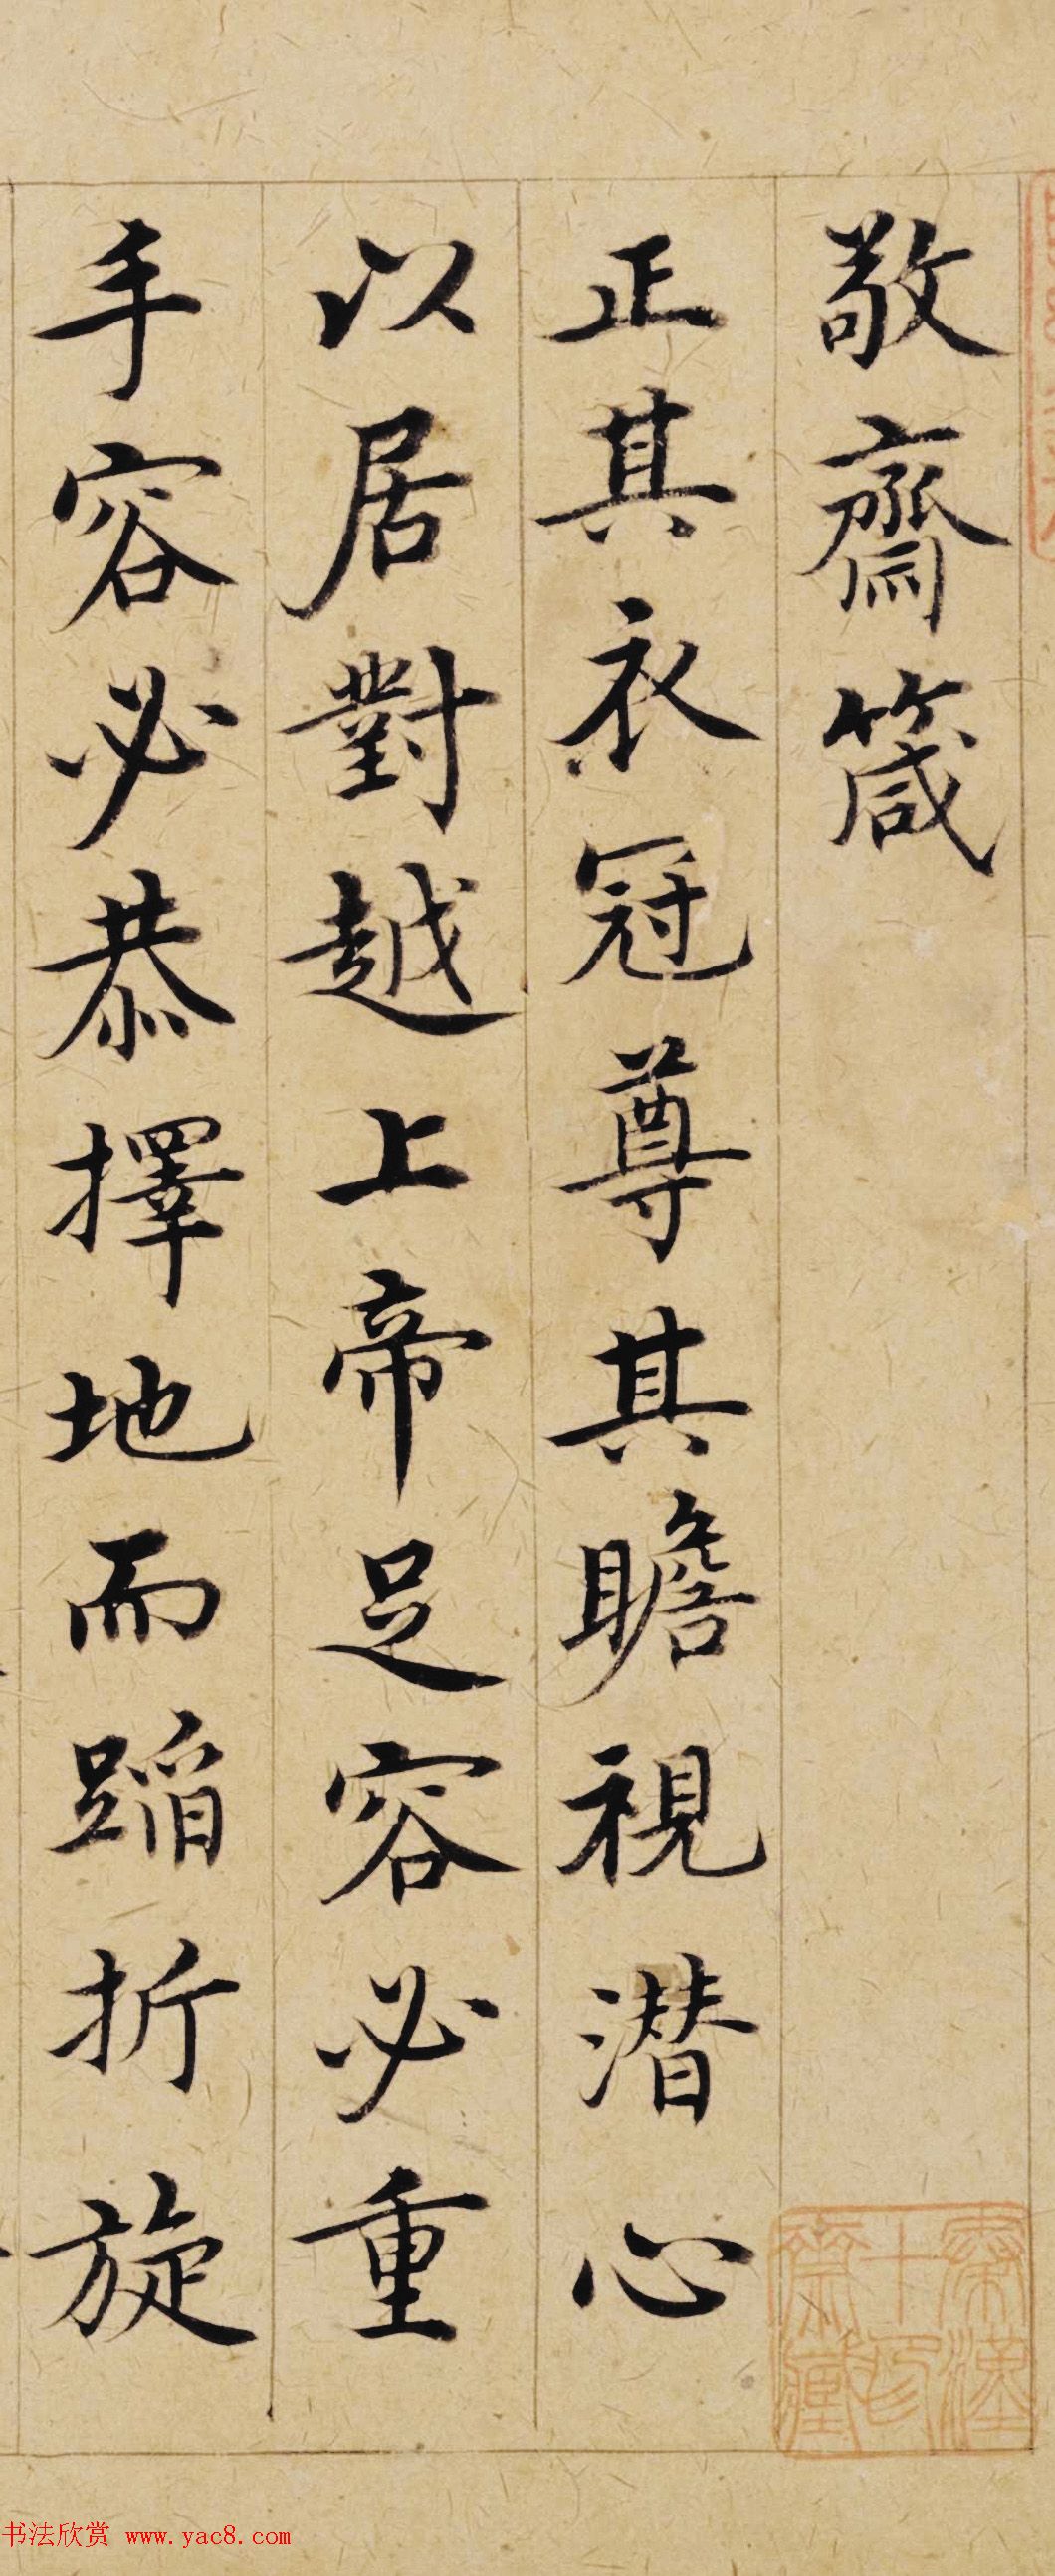 敬齋箴
正其衣冠尊其瞻視潛心
以居對越上帝足容必重
手容必恭擇地而蹈折旋
秦漢十印齋藏
书法欣赏 www.yac8.com